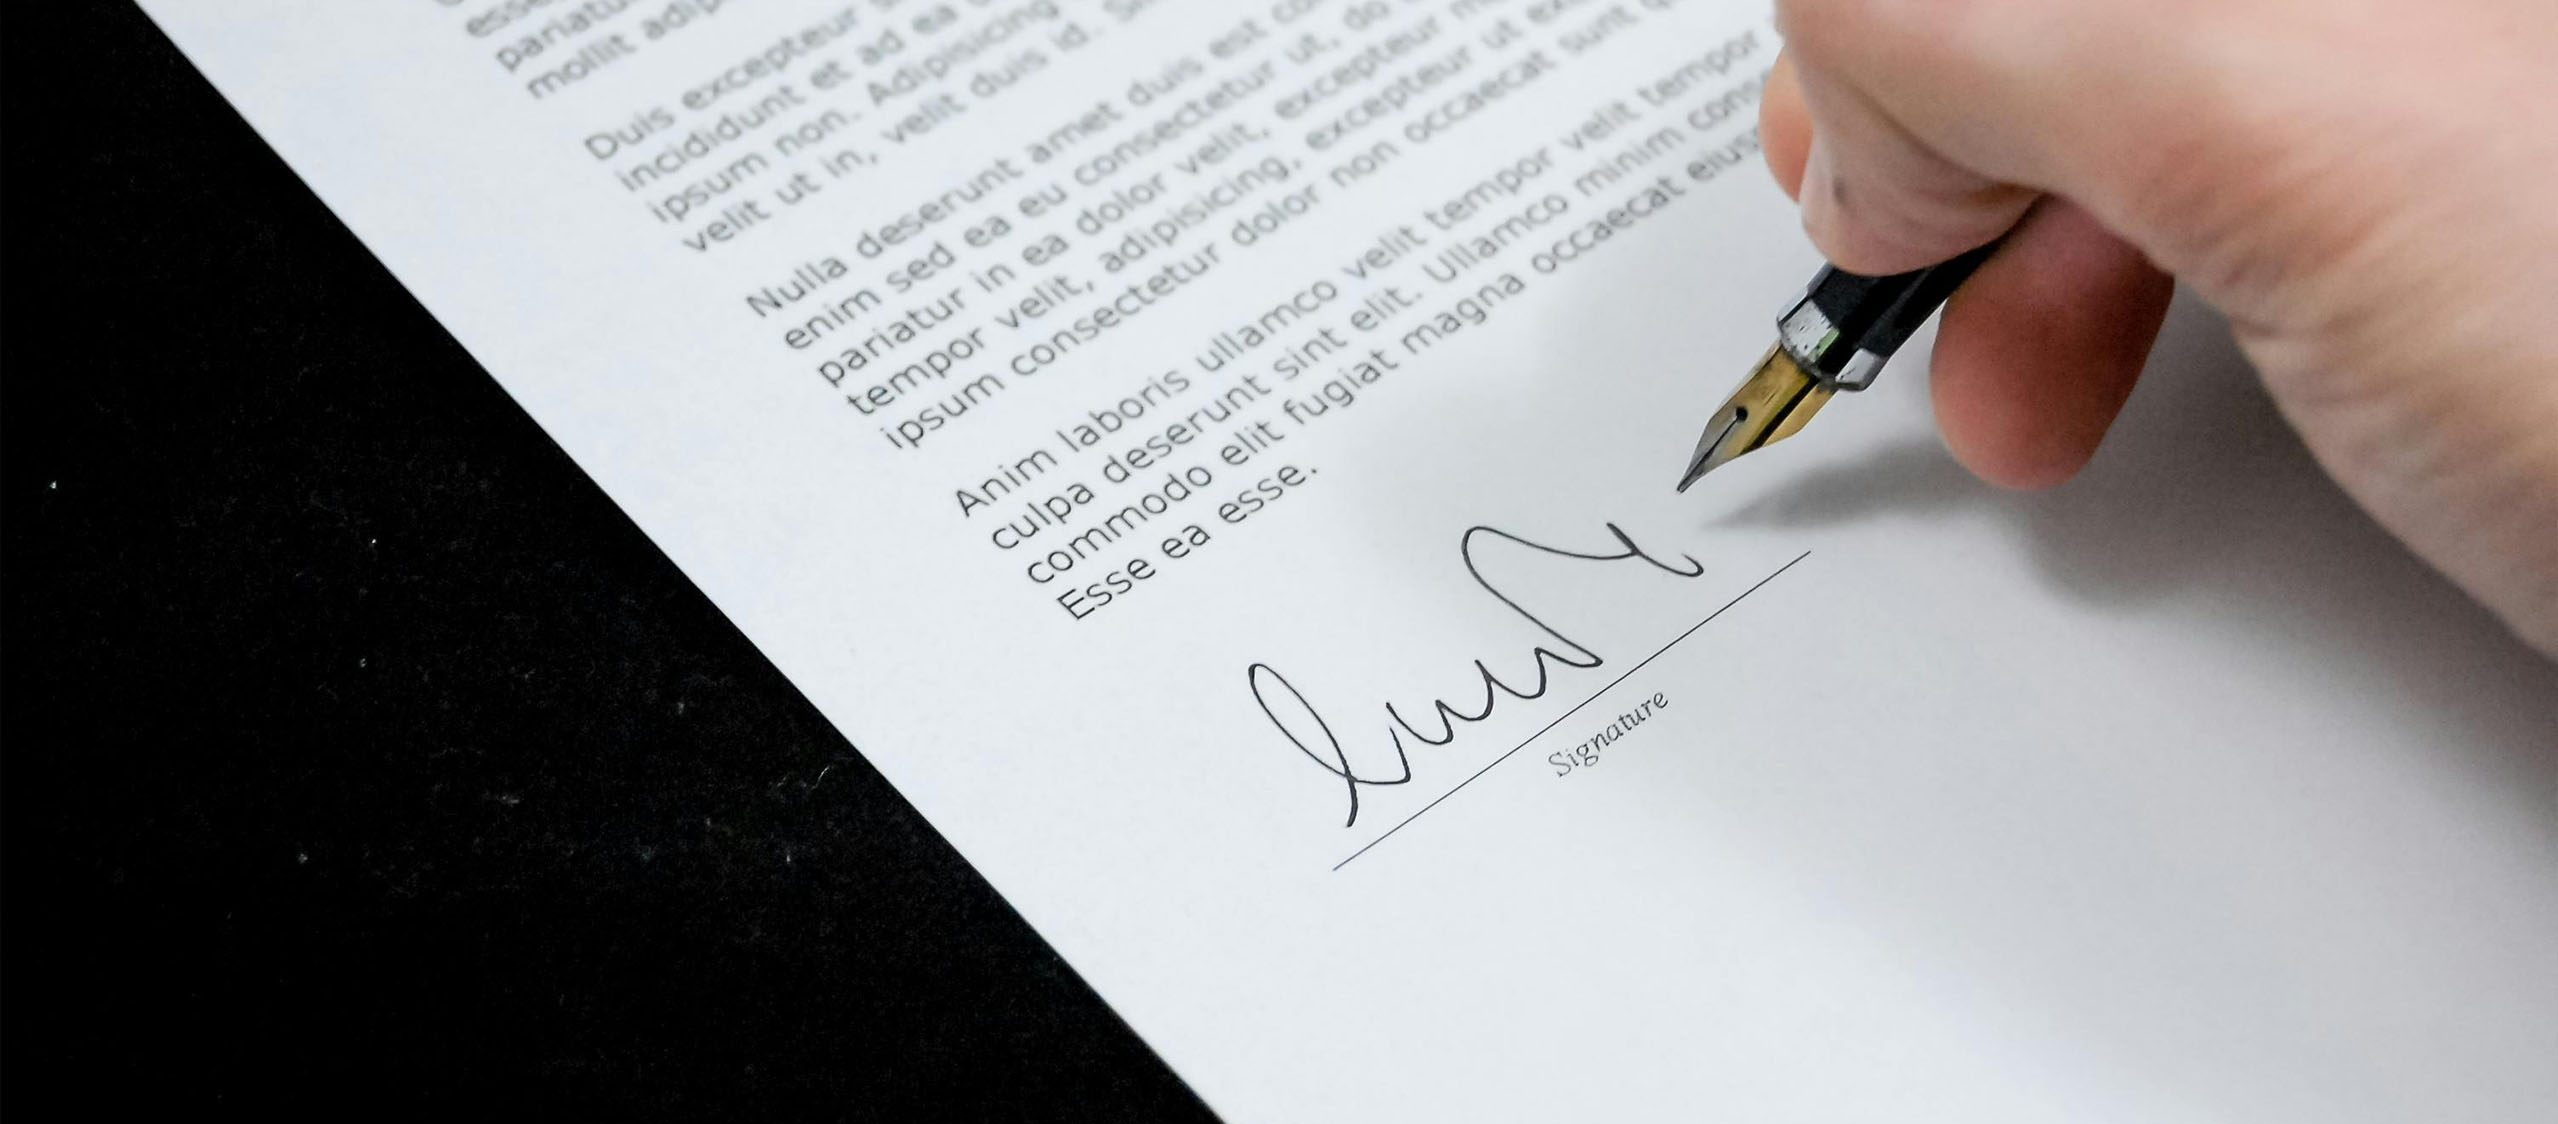 mollit adip
Duis excepteur
incididunt et ad ea
ipsum non. Adipisicing
velit ut in, velit duis id.
Nulla deserunt amet duis est
enim sed ea eu consectetur ut, do
pariatur in ea dolor velit, excepteur
tempor velit, adipisicing, excepteur ut
ipsum consectetur dolor non occaecat sunt
Anim laboris ullamco velit tempor velit tempor
culpa deserunt sint elit. Ullamco minim cons
commodo elit fugiat magna occaecat eius
Esse ea esse.
Signature